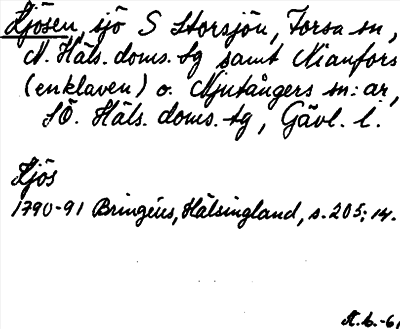 Kjösen, sjö S Storsjön, Forsa sn,
N. Häls. doms.-tg samt Nianfors
(enklaven) o. Njutångers sn:ar,
SÖ. Häls. doms.-tg, Gävl. l.
Kjös
1790-91 Bringéus, Hälsingland, s. 205; 14.